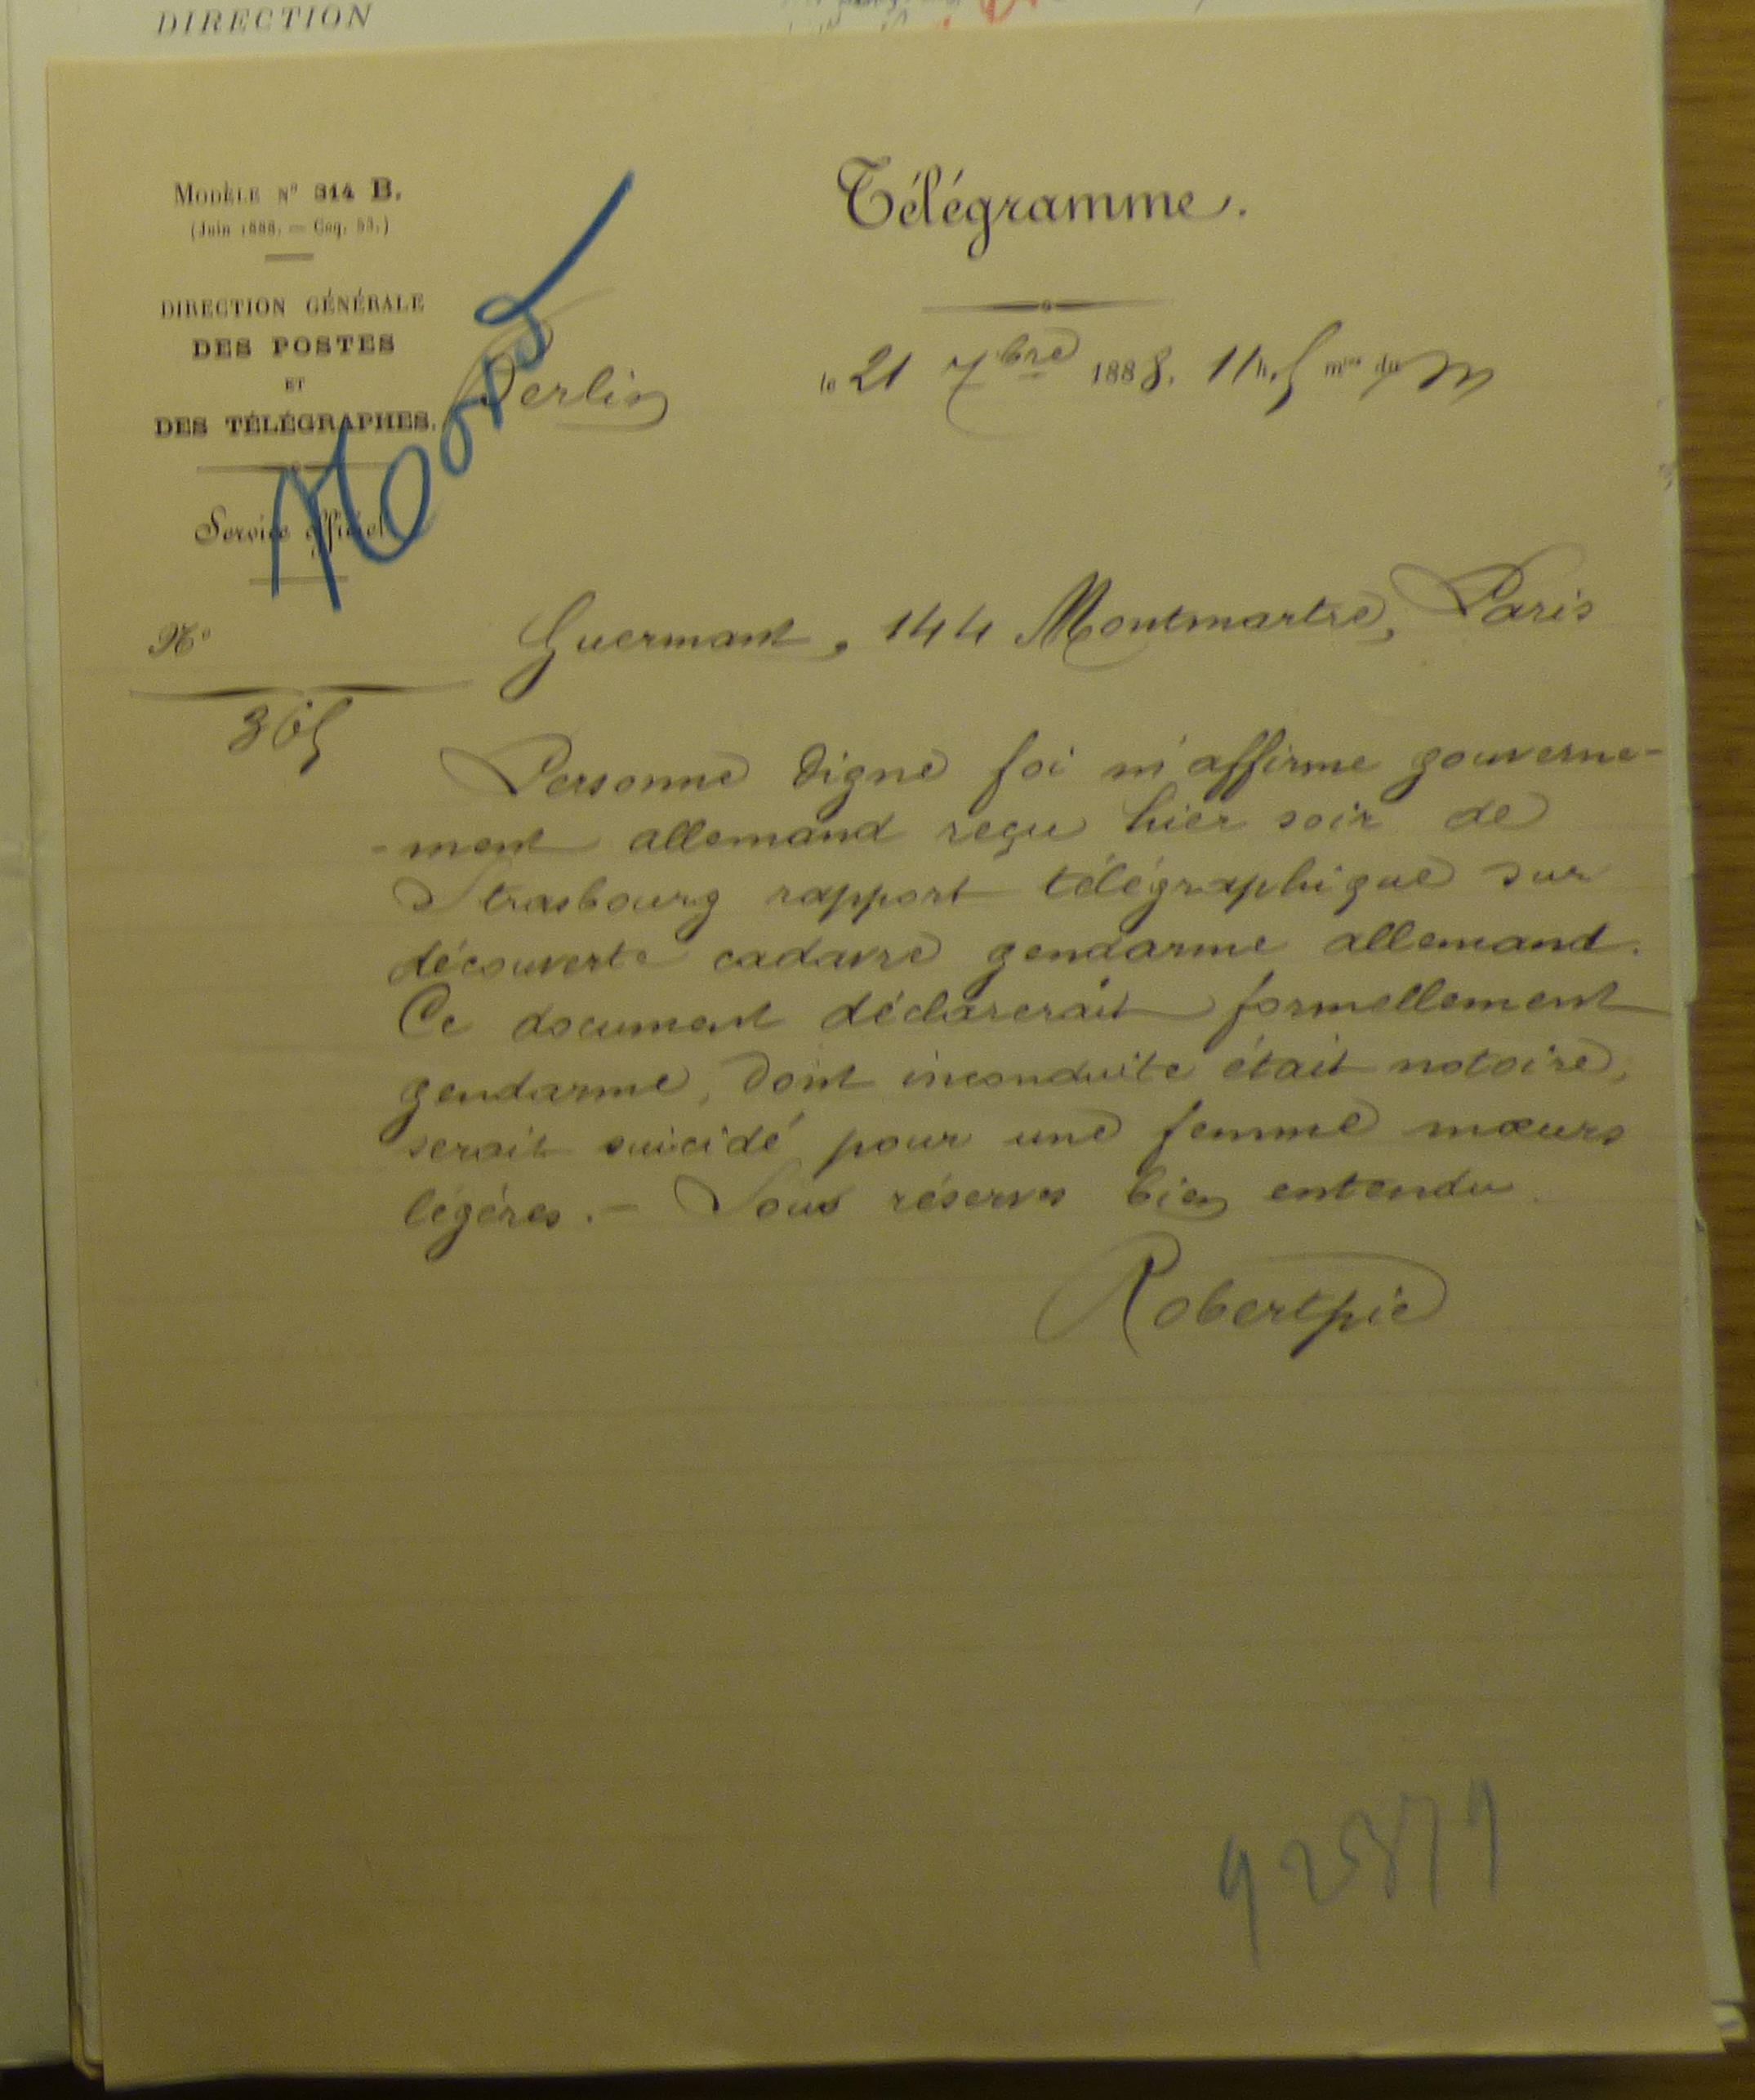 DIRECTION
MODÈLE Nº 314 B.
(Juin 1888. — Coq. 53.)
DIRECTION GÉNÉRALE
DES POSTES
ET
DES TÉLÉGRAPHES.
Service officiel
Nº
365
Télégramme.
Berlin le 21 7bre 1888, 11h. 5 mes du m
Guermant, 144 Montmartre, Paris
Personne digne foi m'affirme gouverne-
-ment allemand reçu hier soir de
Strasbourg rapport télégraphique sur
découverte cadavre gendarme allemand.
Ce document déclarerait formellement
gendarme, dont inconduite était notoire,
serait suicidé pour une femme mœurs
légères. — Sous réserves bien entendu.
Robertpie